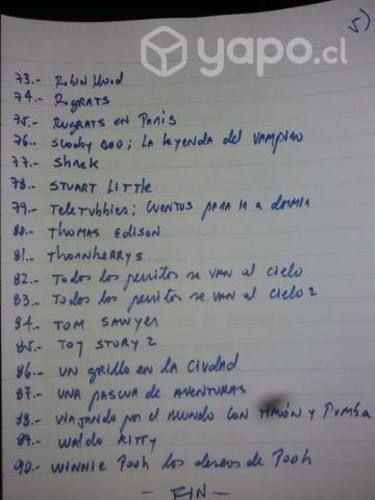 yapo.cl
5)
73.- Robin Hood
74.- RugRATS
75.- RUGRATS EN PARIS
76.- Scooby Doo; La leyenda del vampiro
77.- Shrek
78.- STUART LITTLE
79.- Teletubbies; CUENTOS PARA IR A DORMIR
80.- THOMAS EDISON
81.- THORNHERRYS
82.- Todos los perritos se VAN al cielo
83.- Todos los perritos se VAN al cielo 2
84.- TOM SAWYER
85.- TOY STORY 2
86.- UN grillo en la CIUDAD
87.- UNA PASCUA de AVENTURAS
88.- VIAJANDO por el MUNDO CON TIMÓN y PUMBA
89.- WALDO KITTY
90.- WINNIE Pooh los deseos de Pooh
- FIN -